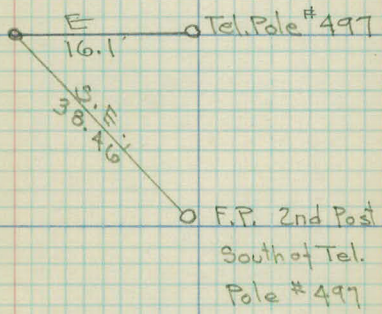 E
Tel. Pole #497
16.1'
S.E.
38.46
F.P. 2nd Post
South of Tel.
Pole #497